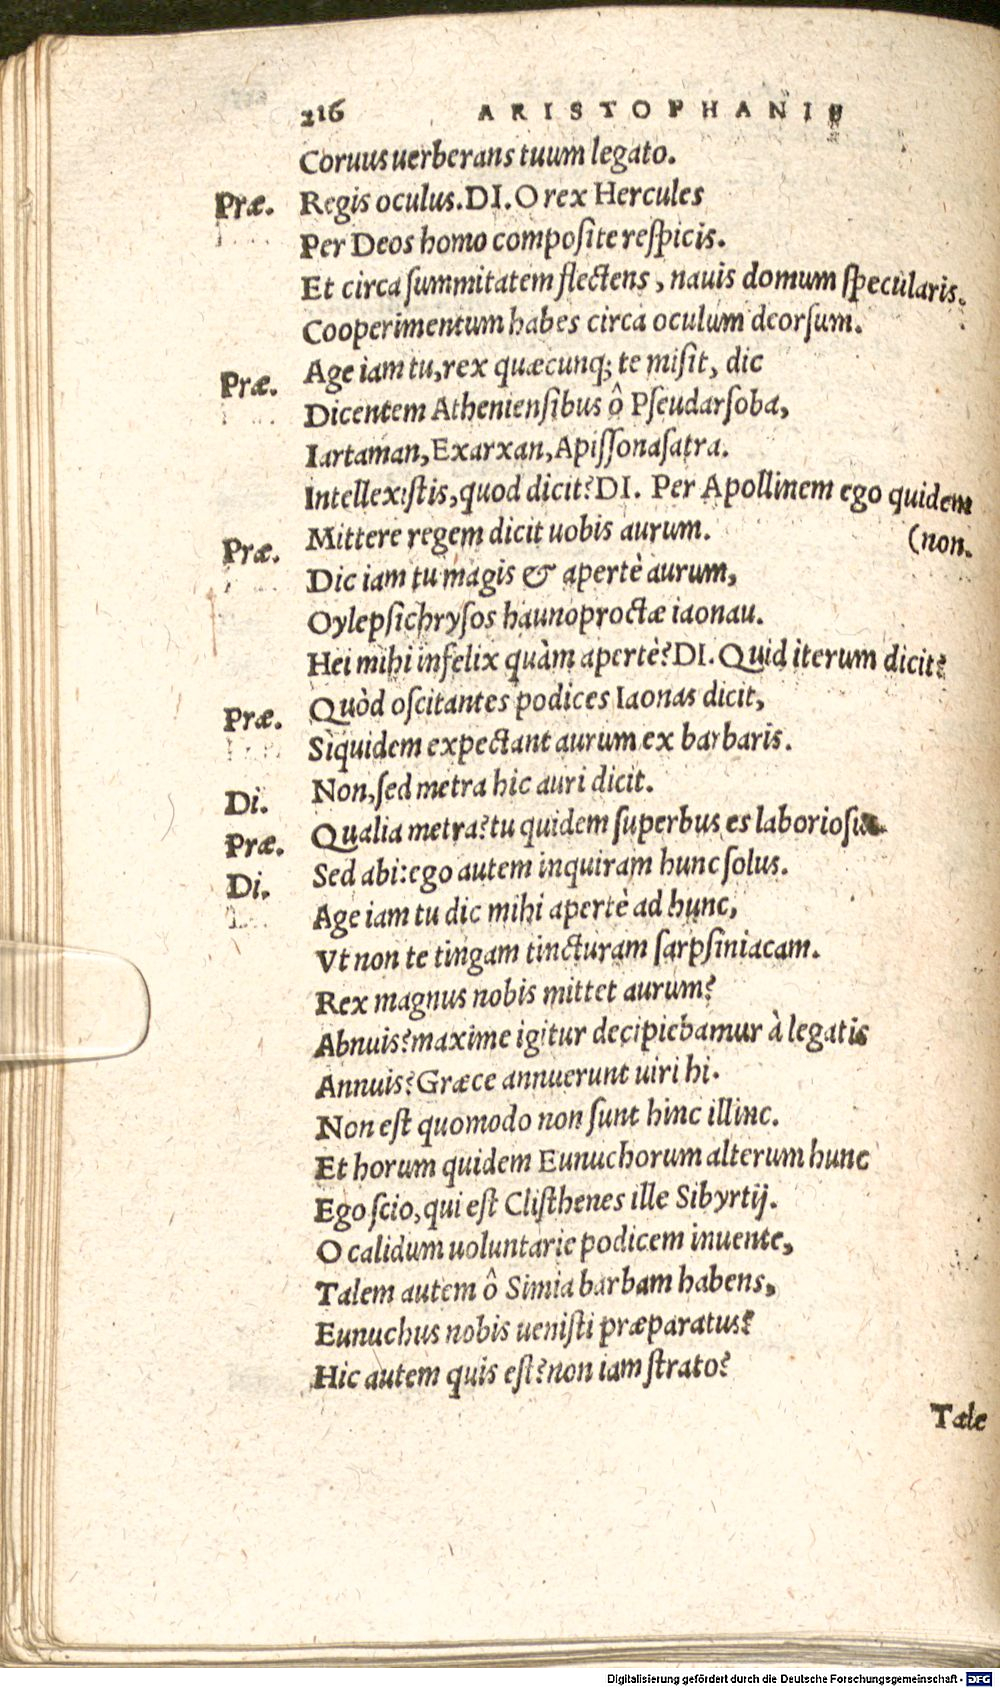 216 ARISTOPHANIS
Coruus uerberans tuum legato.
Præ. Regis oculus. DI. O rex Hercules
Per Deos homo composite respicis.
Et circa summitatem flectens, nauis domum specularis.
Cooperimentum habes circa oculum deorsum.
Præ. Age iam tu, rex quæcunq; te misit, dic
Dicentem Atheniensibus ô Pseudarsoba,
Iartaman, Exarxan, Apissonasatra.
Intellexistis, quod dicit? DI. Per Apollinem ego quidem
(non.
Præ. Mittere regem dicit uobis aurum.
Dic iam tu magis & apertè aurum,
Oylepsichrysos haunoproctæ iaonau.
Hei mihi infelix quàm apertè? DI. Quid iterum dicit?
Præ. Quòd oscitantes podices Iaonas dicit,
Siquidem expectant aurum ex barbaris.
Di. Non, sed metra hic auri dicit.
Præ. Qualia metra? tu quidem superbus es laboriosus.
Di. Sed abi: ego autem inquiram hunc solus.
Age iam tu dic mihi apertè ad hunc,
Vt non te tingam tincturam sarpsiniacam.
Rex magnus nobis mittet aurum?
Abnuis? maxime igitur decipiebamur à legatis
Annuis? Græce annuerunt uiri hi.
Non est quomodo non sunt hinc illinc.
Et horum quidem Eunuchorum alterum hunc
Ego scio, qui est Clisthenes ille Sibyrtij.
O calidum uoluntarie podicem inuente,
Talem autem ô Simia barbam habens,
Eunuchus nobis uenisti præparatus?
Hic autem quis est? non iam strato?
Tale
Digitalisierung gefördert durch die Deutsche Forschungsgemeinschaft - DFG